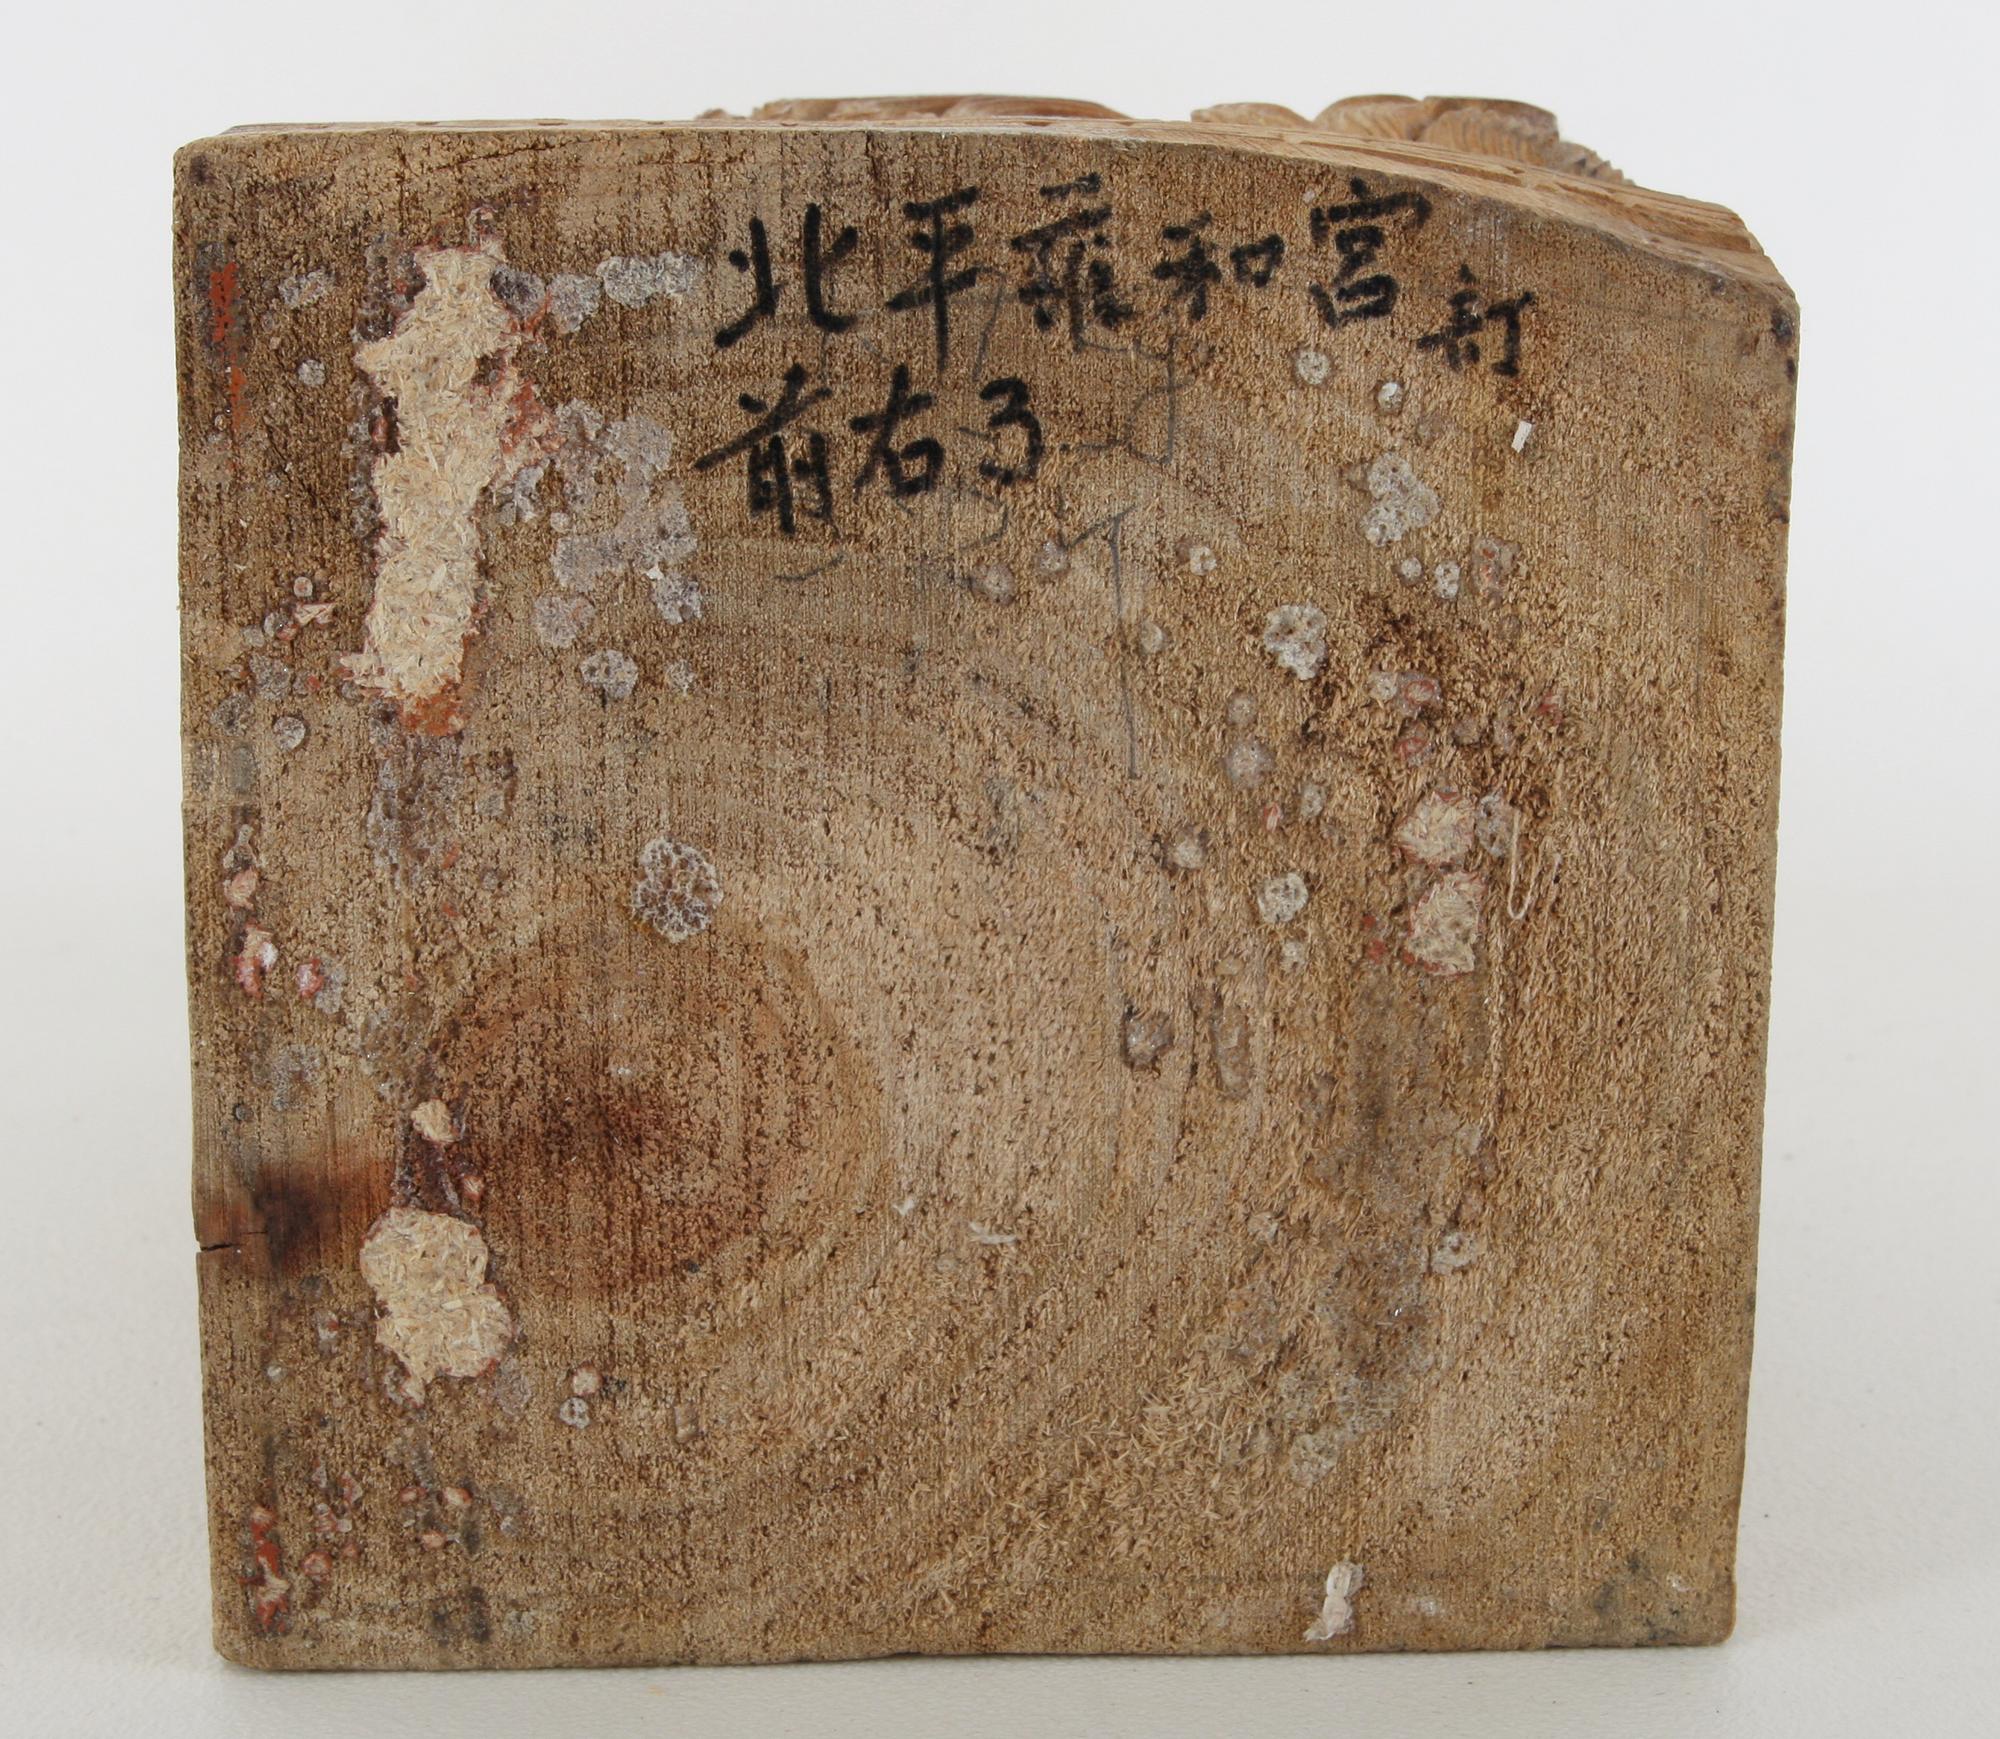 北平雍和宮訂
前右3